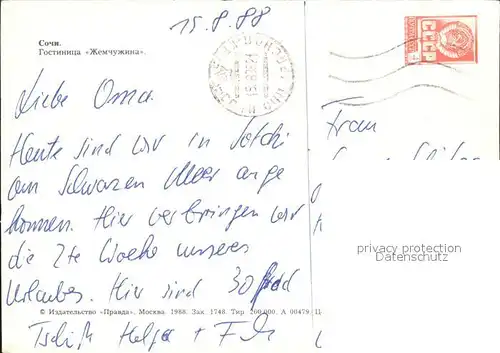 15.8.88
Сочи.
Гостиница «Жемчужина».
СССР
Liebe Oma.
Heute sind wir in Sotchi
am Schwarzen Meer ange
kommen. Hier verbringen wir
die 2te Woche unseres
Urlaubes. Hier sind 30 Grad
© Издательство «Правда». Москва. 1988. Зак. 1748. Тир. 260 000. А 00479. Ц
Tschüß Helga +
Frau
privacy protection
Datenschutz